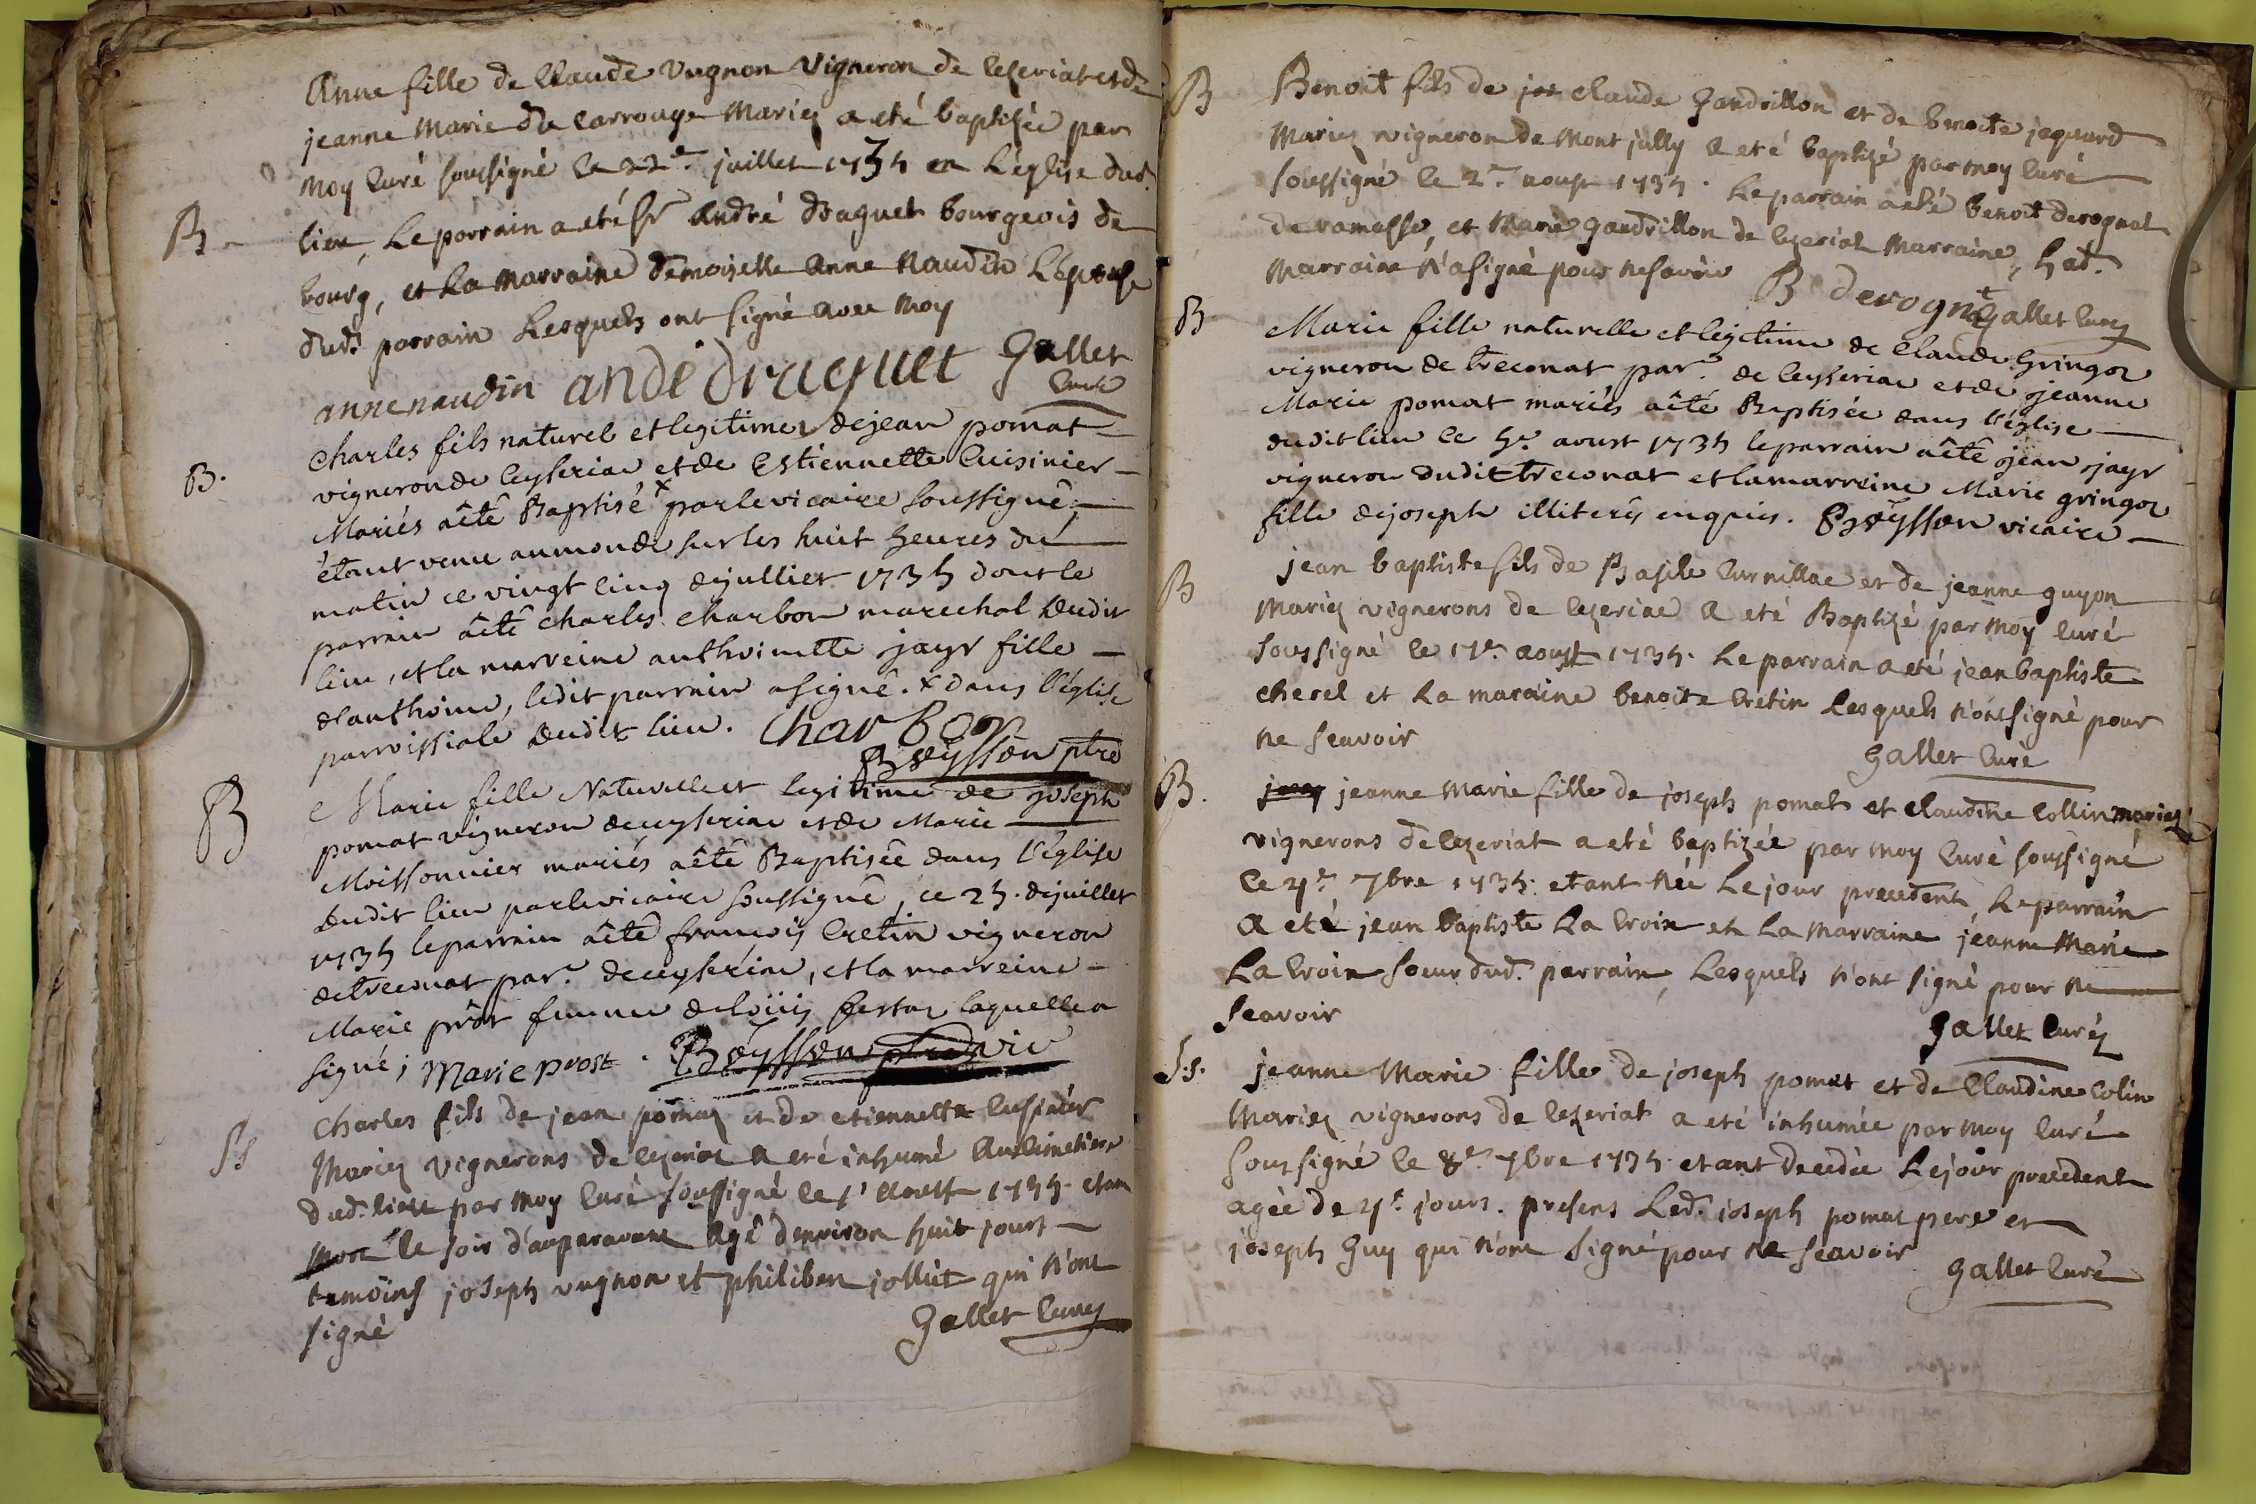 Anne fille de Claude Vugnon Vigneron de Cezeriat et de
jeanne Marie du Carrouge Mariez a eté baptizée par
Moy Curé soussigné le 22e juillet 1735 en L'église dud.
B
lieu, Le parrain a eté Sr André Draguet bourgeois de
bourg, et La Marraine demoiselle Anne Naudin L'épouse
dud. parrain Lesquels ont signé avec Moy
anne naudin andé draguet Gallet
Curé
B.
Charles fils naturel et legitime de jean pomat
vigneron de Ceyseriac et de Estiennette Cuisinier
Mariés aêtê Baptisé x par le vicaire soussignê,
êtant venu au monde sur les huit heures du
matin ce vingt cinq de jullier 1735 dont le
parrain aêtê Charles Charbon marechal dudit
lieu, et la marreine anthoinette jayr fille
d'anthoine, ledit parrain a signê. x dans l'église
parroissiale dudit lieu. CharBon
Beÿsson ptre
B
Marie fille Naturelle et legitime de joseph
pomat vigneron de ceyseriac et de Marie
Moissonnier mariés aêtê Baptisêe dans l'église
dudit lieu par le vicaire soussignê, ce 25. de juillet
1735 le parrain aêtê françois Cretin vigneron
de treconat par. de ceyseriac, et la marreine
Marie prôst femme de loüis laquelle a
signé; Marie prost. Beÿsson vic
Ss
Charles fils de jean pomaz et de etiennette Cusinier
Mariez vignerons de Cezeriat a eté inhumé au Cimetiere
dud. lieu par Moy Curé soussigné le 1r Aoust 1735. etant
mort le soir d'auparavant Agé d'environ huit jours
temöins joseph vugnon et philibert jollüt qui n'ont
signé
Gallet Curez
B
Benoit fils de jos Claude Gandrillon et de benoite jequard
Mariez vigneron de Mont jully a eté baptizé par moy Curé
soussigné le 2e aoust 1735. Le parrain a eté benoit derognat
de ramasse, et Marie gaudrillon de Cezeriat Marraine, Lad.
Marraine n'a signé pour ne savoir B derognt Gallet Curez
B
Marie fille naturelle et legitime de Claude Gringoz
vigneron de treconat par. de Ceyseriac et de jeanne
Marie pomat mariés aêté Baptisée dans l'église
dudit lieu ce 5e aoust 1735 le parrain aêtê jean jayr
vigneron dudit treconat et la marreine Marie gringoz
fille de joseph illiterés enquis. Beÿsson vicaire
B
jean baptiste fils de Basile Curnillac et de jeanne guyon
Mariez vignerons de Cezeriac a eté Baptizé par Moy Curé
soussigné le 17e aoust 1735. Le parrain a eté jean baptiste
cherel et La maraine benoite Cretin Lesquels n'ont signé pour
ne scavoir
Gallet Curé
B.
jeanne Marie fille de joseph pomat et Claudine Collin mariez
vignerons de Cezeriat a eté baptizée par Moy Curé soussigné
le 4e 7bre 1735. etant née Le jour precedent, Le parrain
a eté jean baptiste La Croix et La Marraine jeanne Marie
La Croix soeur dud. parrain, Lesquels n'ont signé pour ne
scavoir
Gallet Curéz
S.s.
jeanne Marie fille de joseph pomat et de Claudine Colin
Mariez vignerons de Cezeriat a eté inhumée par Moy Curé
soussigné le 8e 7bre 1735. etant decedée Le jour precedent
agée de 4e jours. presens Led. joseph pomat pere et
joseph Guy qui n'ont signé pour ne scavoir Gallet Curé